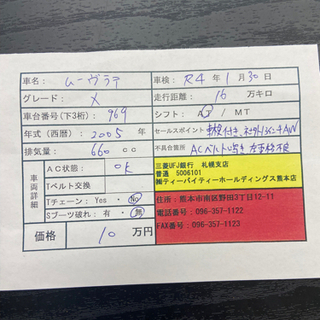 車名： ムーヴラテ 車検： R4 年 1 月 30 日
グレード： X 走行距離： 16 万キロ
車台番号(下3桁) 969 シフト： AT / MT
年式(西暦) 2005 年 セールスポイント
排気量： 660 cc 不具合箇所 ACベルト鳴き
車両詳細
AC状態： OK
Tベルト交換
Tチェーン： Yes ・ No
Sブーツ破れ： 有 ・ 無
価格 10 万円
三菱UFJ銀行 札幌支店
普通 5006101
㈱ティーバイティーホールディングス熊本店
住所：熊本市南区野田3丁目12-11
電話番号：096-357-1122
FAX番号：096-357-1123